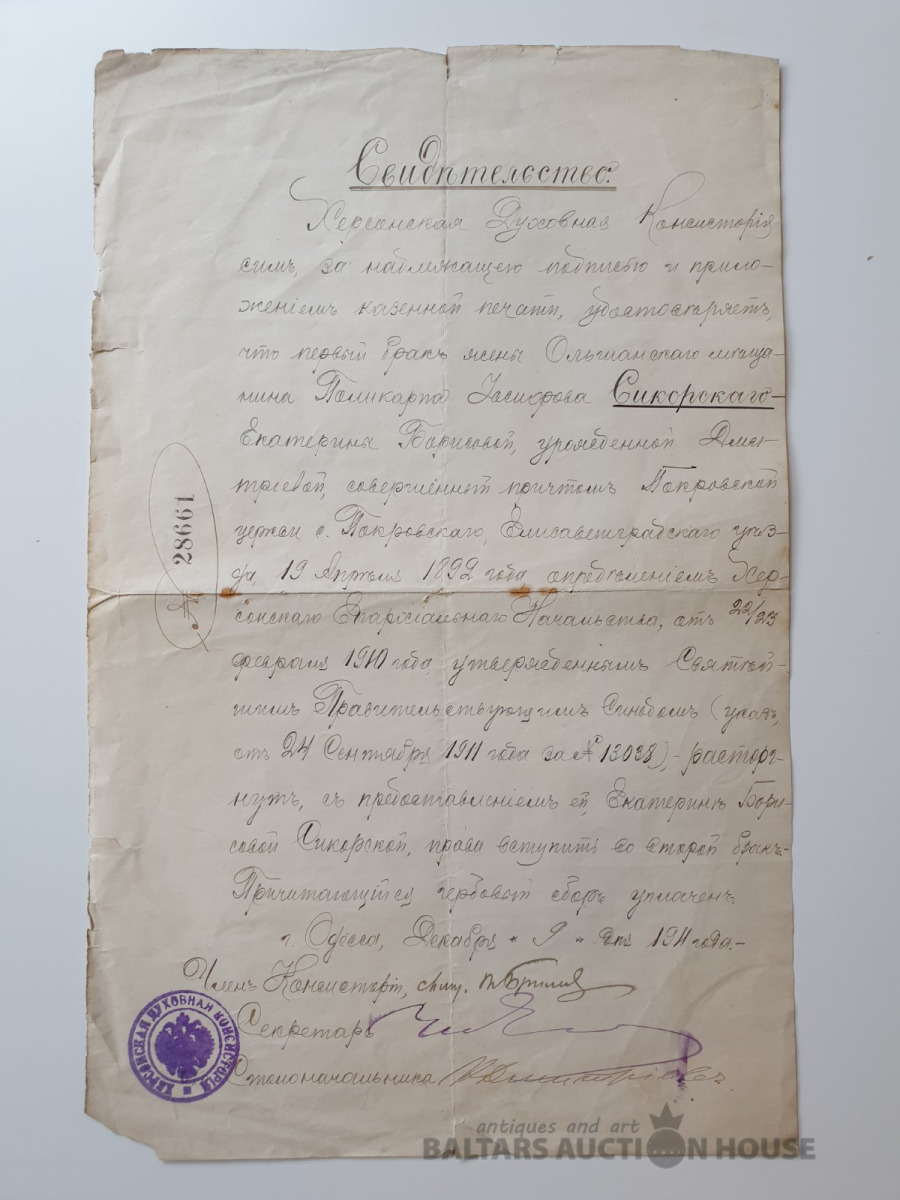 Свидѣтельство.
Херсонская Духовная Консисторія
симъ, за надлежащею подписью и прило-
женіемъ казенной печати, удостовѣряетъ,
что первый бракъ жены Ольшанскаго мѣща-
нина Поликарпа Сикорскаго-
Екатерины Борисовой, урожденной Дмит-
ріевой, совершенный причтомъ Покровской
церкви с. Покровскаго, Елисаветградскаго уѣз-
да, 19 Апрѣля 1892 года, опредѣленіемъ Хер-
сонскаго Епархіальнаго Начальства, отъ 22/23
февраля 1910 года, утвержденнымъ Святѣй-
шимъ Правительствующимъ Синодомъ (указъ,
отъ 24 Сентября 1911 года за № 13038),- расторг-
нутъ, съ предоставленіемъ ей, Екатеринѣ Бори-
совой Сикорской, права вступить во второй бракъ.-
Причитающійся гербовый сборъ уплаченъ.
г. Одесса, Декабря " 9 " дня 1911 года.-
Членъ Консисторіи, свящ.
Секретарь
Столоначальника
№ 28661
ХЕРСОНСКАЯ ДУХОВНАЯ КОНСИСТОРІЯ
antiques and art
BALTARS AUCTION HOUSE